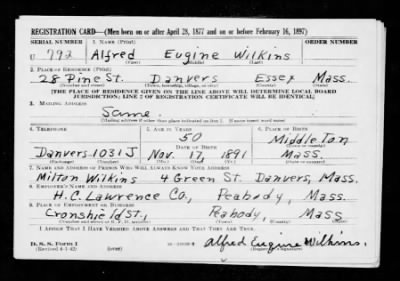 REGISTRATION CARD—(Men born on or after April 28, 1877 and on or before February 16, 1897)
SERIAL NUMBER 1. NAME (Print) ORDER NUMBER
U 792 Alfred Eugine Wilkins
(First) (Middle) (Last)
2. PLACE OF RESIDENCE (Print)
28 Pine St. Danvers Essex Mass.
(Number and street) (Town, township, village, or city) (County) (State)
[THE PLACE OF RESIDENCE GIVEN ON THE LINE ABOVE WILL DETERMINE LOCAL BOARD
JURISDICTION; LINE 2 OF REGISTRATION CERTIFICATE WILL BE IDENTICAL]
3. MAILING ADDRESS
Same.
[Mailing address if other than place indicated on line 2. If same insert word same]
4. TELEPHONE 5. AGE IN YEARS 6. PLACE OF BIRTH
50 Middleton
DATE OF BIRTH
Danvers 1031J Nov 17, 1891 Mass.
(Exchange) (Number) (Mo.) (Day) (Yr.) (State or country)
7. NAME AND ADDRESS OF PERSON WHO WILL ALWAYS KNOW YOUR ADDRESS
Milton Wilkins 4 Green St. Danvers, Mass.
8. EMPLOYER'S NAME AND ADDRESS
H.C. Lawrence Co., Peabody, Mass.
9. PLACE OF EMPLOYMENT OR BUSINESS
Cronshield St., Peabody, Mass
(Number and street or R. F. D. number) (Town) (County) (State)
I AFFIRM THAT I HAVE VERIFIED ABOVE ANSWERS AND THAT THEY ARE TRUE.
D. S. S. Form 1
(Revised 4-1-42) (over) Alfred Eugine Wilkins.
(Registrant's signature)